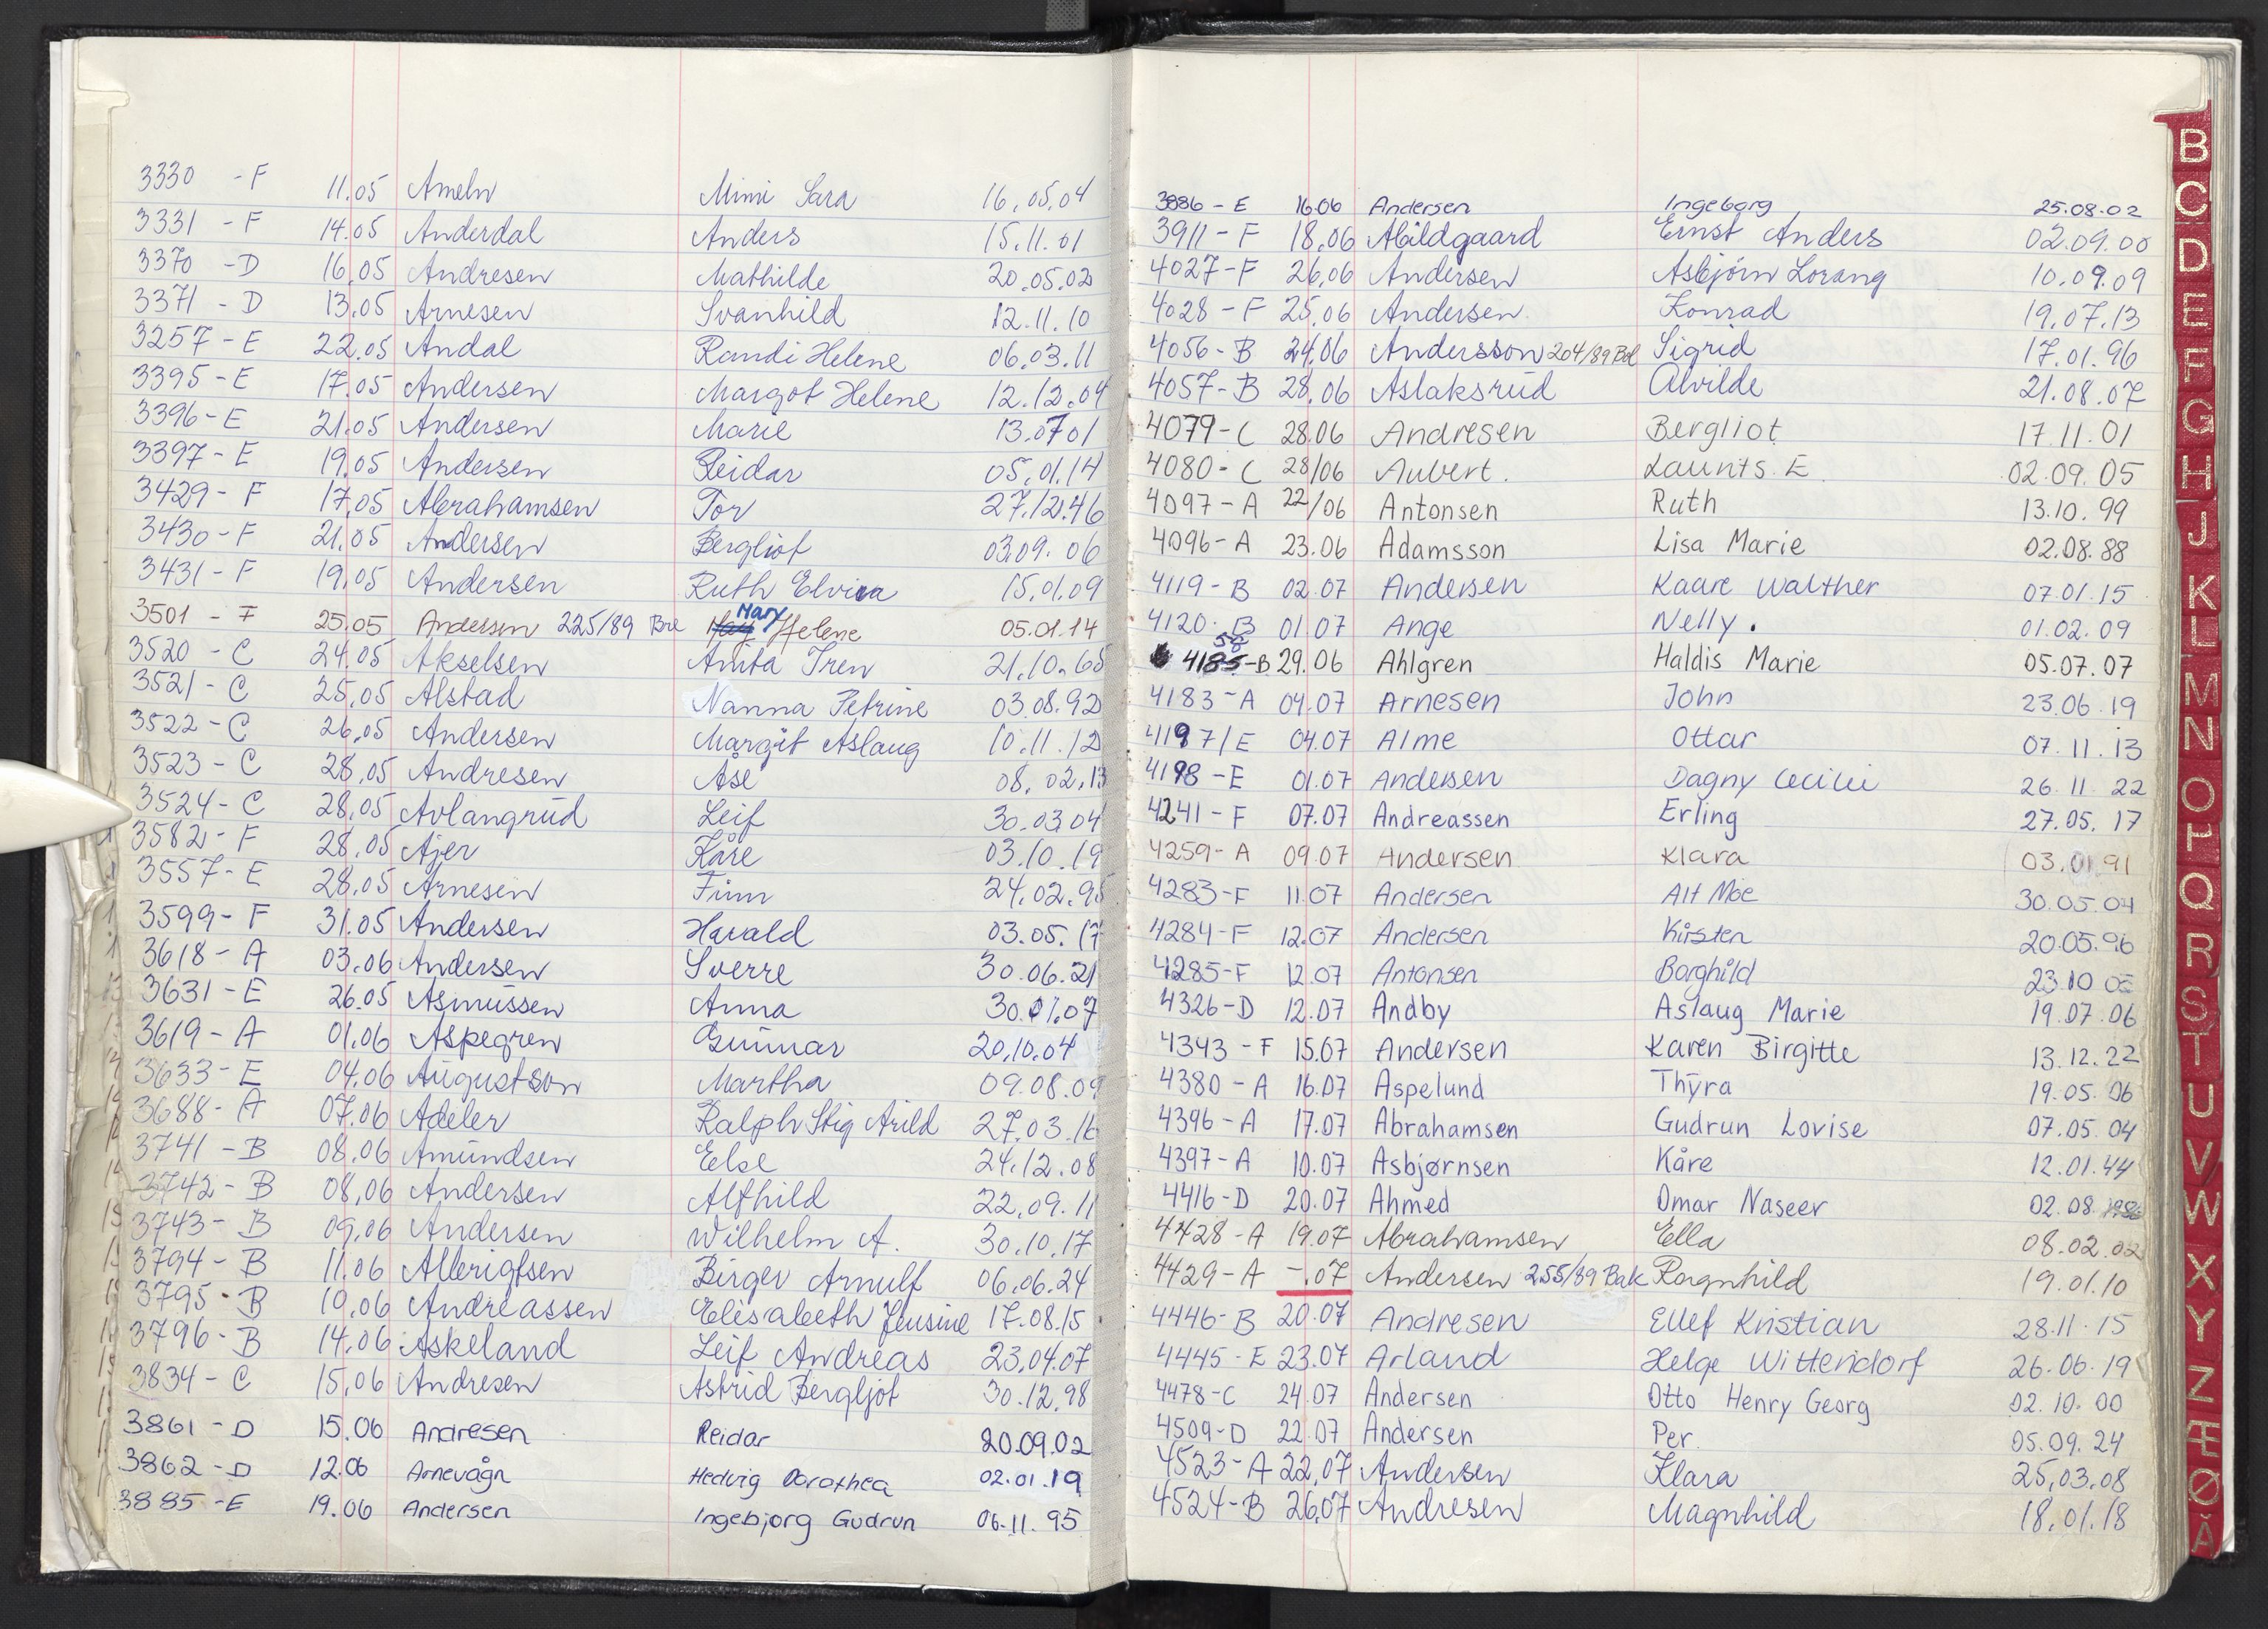 3330 - F 11.05 Ameln Mimi Sara 16.05.04
3331 - F 14.05 Anderdal Anders 15.11.01
3370 - D 16.05 Andresen Mathilde 20.05.02
3371 - D 13.05 Arnesen Svanhild 12.11.10
3257 - E 22.05 Andal Randi Helene 06.03.11
3395 - E 17.05 Andersen Margot Helene 12.12.04
3396 - E 21.05 Andersen Marie 13.07 01
3397 - E 19.05 Andersen Reidar 05.01.14
3429 - F 17.05 Abrahamsen Tor 27.12.46
3430 - F 21.05 Andersen Bergliot 03.09.06
3431 - F 19.05 Andersen Ruth Elvira 15.01.09
3501 - F 25.05 Andersen 225/89 Bre Mary Helene 05.01.14
3520 - C 24.05 Akselsen Anita Iren 21.10.65
3521 - C 25.05 Alstad Nanna Petrine 03.08.92
3522 - C 26.05 Andersen Margit Aslaug 10.11.12
3523 - C 28.05 Andresen Åse 08.02.13
3524 - C 28.05 Avlangrud Leif 30.03.04
3582 - F 28.05 Ajer Kåre 03.10.19
3557 - E 28.05 Arnesen Finn 24.02.95
3599 - F 31.05 Andersen Harald 03.05.17
3618 - A 03.06 Andersen Sverre 30.06.21
3631 - E 26.05 Asmussen Anna 30.01.07
3619 - A 01.06 Aspegren Gunnar 20.10.04
3633 - E 04.06 Augustson Martha 09.08.09
3688 - A 07.06 Adeler Ralph Stig Arild 27.03.16
3741 - B 08.06 Amundsen Else 24.12.08
3742 - B 08.06 Andersen Alfhild 22.09.11
3743 - B 09.06 Andersen Wilhelm A. 30.10.17
3794 - B 11.06 Albrigtsen Birger Arnulf 06.06.24
3795 - B 10.06 Andreassen Elisabeth Jensine 17.08.15
3796 - B 14.06 Askeland Leif Andreas 23.04.07
3834 - C 15.06 Andresen Astrid Bergljot 30.12.98
3861 - D 15.06 Andresen Reidar 20.09.02
3862 - D 12.06 Arnevågn Hedvig Dorothea 02.01.19
3885 - E 19.06 Andersen Ingebjorg Gudrun 06.11.95
3886 - E 16.06 Andersen Ingeborg 25.08.02
3911 - F 18.06 Abildgaard Ernst Anders 02.09.00
4027 - F 26.06 Andersen Asbjørn Lorang 10.09.09
4028 - F 25.06 Andersen Konrad 19.07.13
4056 - B 24.06 Andersson 204/89 Bol Sigrid 17.01.96
4057 - B 28.06 Aslaksrud Alvilde 21.08.07
4079 - C 28.06 Andresen Bergliot 17.11.01
4080 - C 28/06 Aubert. Launts. E. 02.09.05
4097 - A 22/06 Antonsen Ruth 13.10.99
4096 - A 23.06 Adamsson Lisa Marie 02.08.88
4119 - B 02.07 Andersen Kaare Walther 07.01.15
4120. B 01.07 Ange Nelly. 01.02.09
58
4185 - B 29.06 Ahlgren Haldis Marie 05.07.07
4183 - A 04.07 Arnesen John 23.06.19
4197/E 04.07 Alme Ottar 07.11.13
4198 - E 01.07 Andersen Dagny Cecilie 26.11 22
4241 - F 07.07 Andreassen Erling 27.05.17
4259 - A 09.07 Andersen Klara 03.01.91
4283 - F 11.07 Andersen Alf Moe 30.05.04
4284 - F 12.07 Andersen Kirsten 20.05.96
4285 - F 12.07 Antonsen Borghild 23.10
4326 - D 12.07 Andby Aslaug Marie 19.07.06
4343 - F 15.07 Andersen Karen Birgitte 13.12.22
4380 - A 16.07 Aspelund Thyra 19.05.06
4396 - A 17.07 Abrahamsen Gudrun Lovise 07.05.04
4397 - A 10.07 Asbjørnsen Kåre 12.01.44
4416 - D 20.07 Ahmed Omar Naseer 02.08.1986
4428 - A 19.07 Abrahamsen Ella 08.02.02
4429 - A -.07 Andersen 255/89 Bak Ragnhild 19.01.10
4446 - B 20.07 Andresen Ellef Kristian 28.11.15
4445 - E 23.07 Arland Helge Wittendorf 26.06.19
4478 - C 24.07 Andersen Otto Henry Georg 02.10.00
4509 - D 22.07 Andersen Per. 05.09.24
4523 - A 22.07 Andersen Klara 25.03.08
4524 - B 26.07 Andresen Magnhild 18.01.18
B
C
D
E
F
G
H
J
K
L
M
N
O
P
Q
R
S
T
U
V
W
X
Y
Z
Æ
Ø
Å